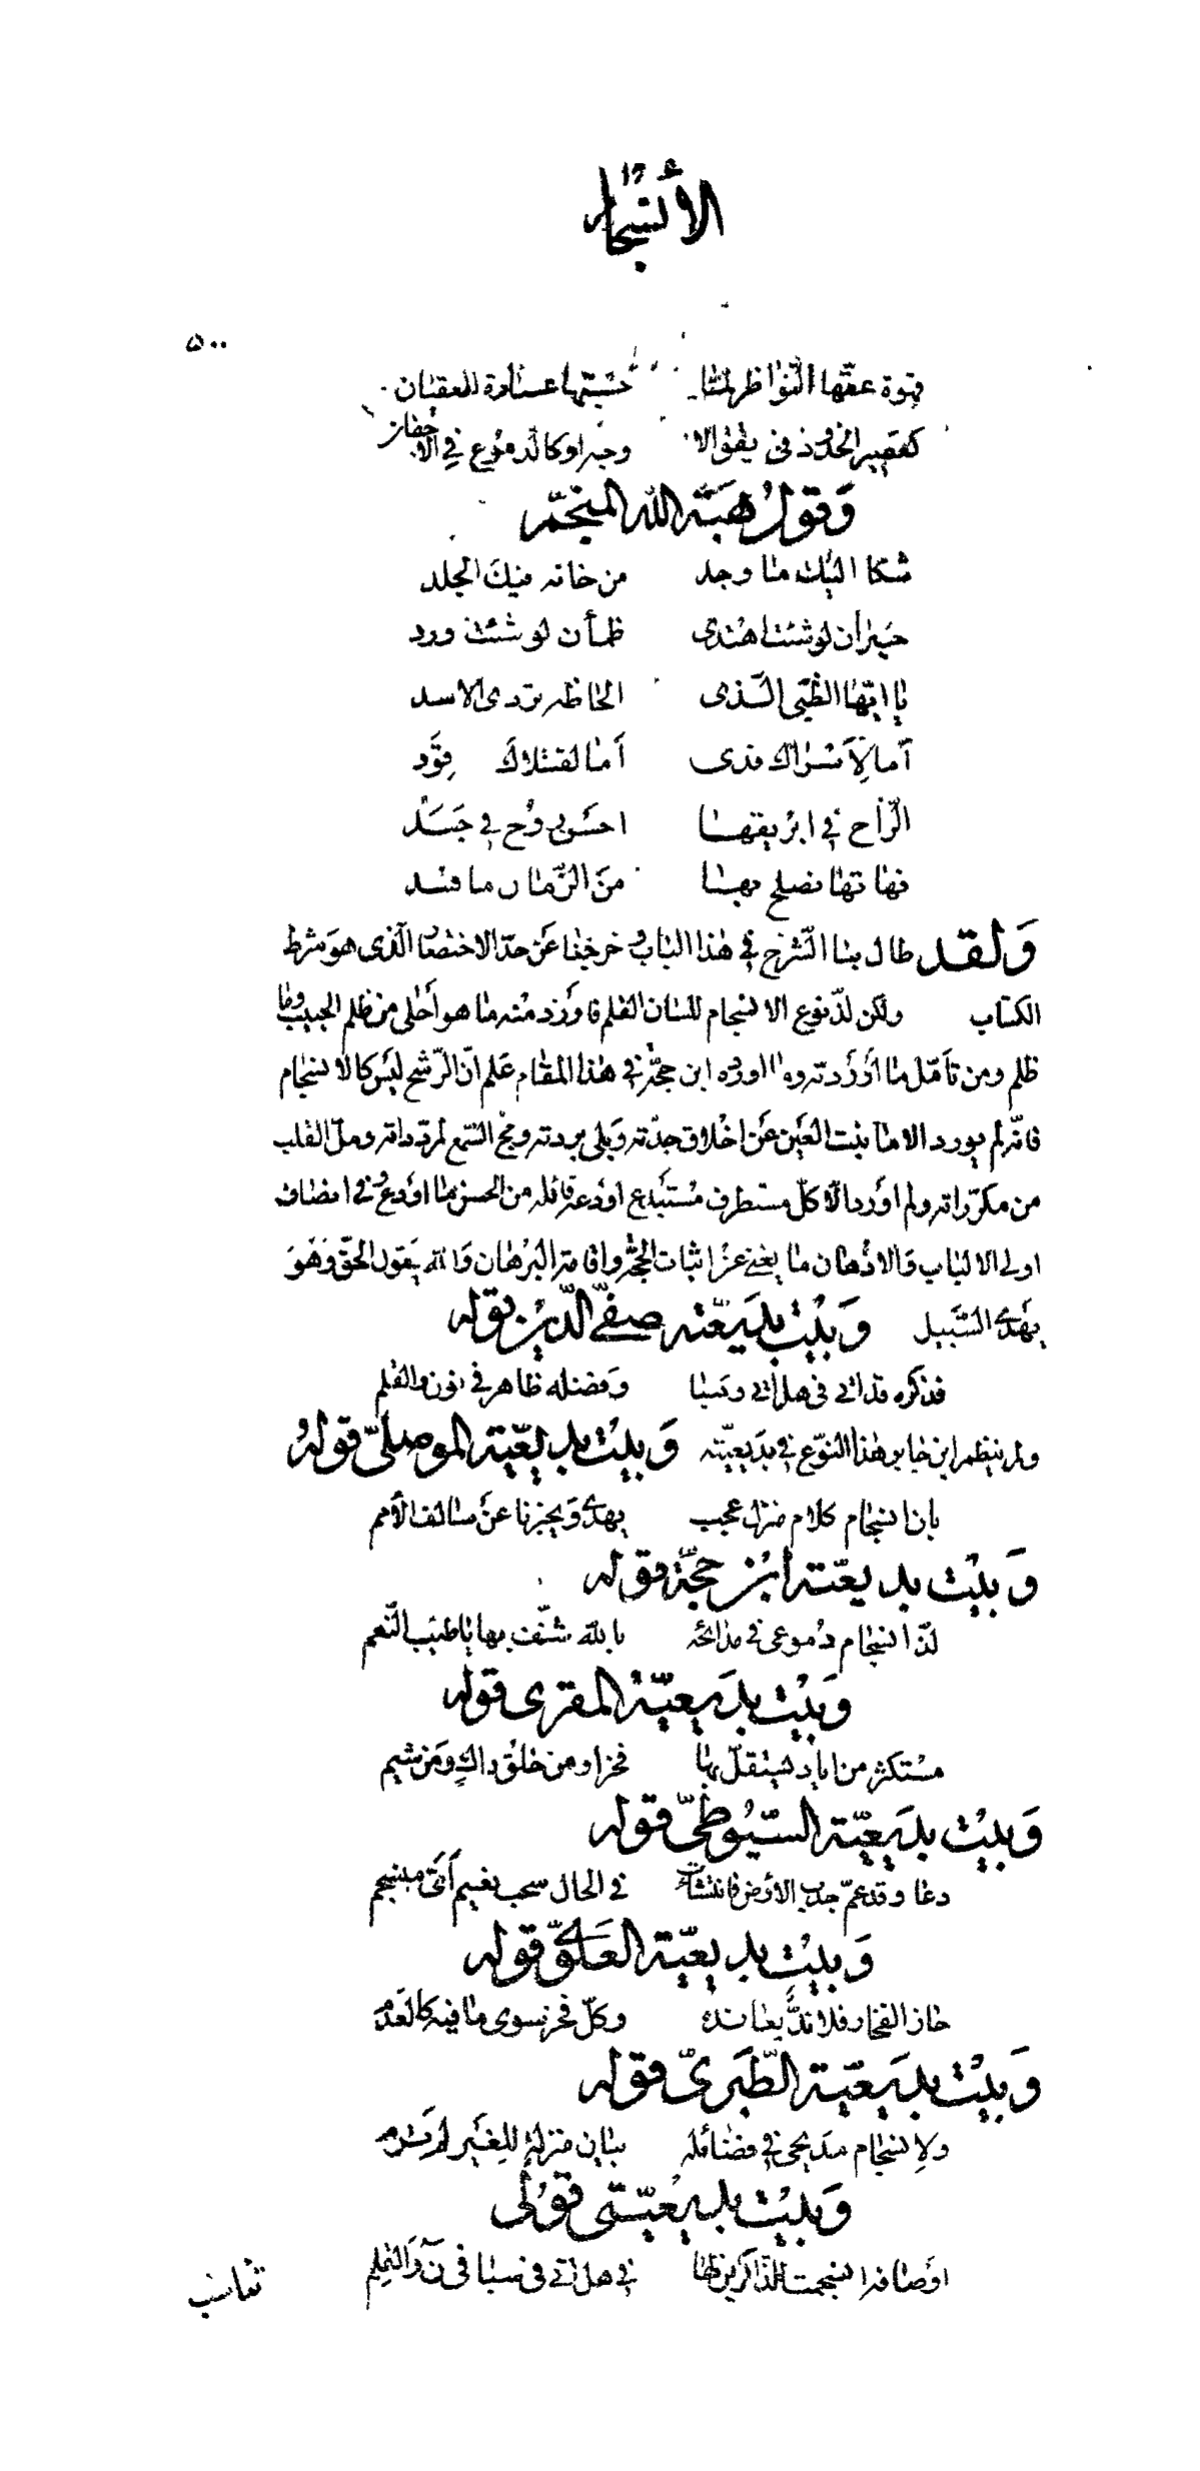 الأنسجام
٥٠٠
قهوة عقّها النّواظر لمّا حسبتها عصارة العقيان
كعصير الخدود فى يقق الا وجه او كالدموع فى الأجفان
وَقولُ هبَة الله المنجّم
شكا اليك ما وجد من خانه فيك الجلد
حيران لو شئت اهتدى ظمأن لو شئت ورد
يا ايّها الظّبى الّذى الحاظه تردى الاسد
أما لِأسراك فدى أما لقتلاكَ قِوَد
الرّاح في ابريقها احسن روح في جسَد
فهاتها نصلح بها منَ الزّمان ما فسد
وَلقد طال بنا الشّرح في هذا الباب وخرجنا عَن حدّ الاختصار الّذى هوَ شرط
الكتاب ولكن لذّ نوع الانسجام للسان القلم فاورَد منه ما هو أحلى من ظلم الحبيب وما
ظلم ومن تأمّل ما أورَدته وما اورده ابن حجّة في هذا المقام عَلم انّ الرّشح ليسَ كالانسجام
فانّه لم يورد الا ما نبت العَين عَن اخلاق جدّته وَبلى بردته ومجّ السّمع لمرّدداته وملّ القلب
من مكرّراته ولم اورد الّا كلّ مستطرف مُستبدع اودعه قائله من الحسن ما اودع وفى انصاف
اولى الالباب وَالاذهان ما يغنى عن اثبات الحجّة واقامة البرهان وَالله يَقول الحقّ وَهوَ
يَهدى السّبيل وَبيْت بديعيّته صفىّ الدّين بقوله
فذكره قد اتى فى هل اتى وسبا وَفضله ظاهر فى نون والقلم
ولم ينظم ابن جابر هذا النّوع في بدَيعيّته وَبيْت بديعيّة الموصلىّ قولهُ
بان انسجام كلام منزل عجب يهدى وَيخبرنا عَن سالف الأمم
وَبيْت بديعيّة أبن حجّة قوله
لذّ انسجام دُموعى فى مدائحه بالله شنّف بها يا طيّب النّعم
وَبيْت بدَيعيّة المقرى قوله
مُستكثر من اياد يستقلّ بها فخرا ومن خلُق زاكٍ وَمن شيم
وَبيْت بدَيعيّة السّيُوطىّ قوله
دعا وقد عمّ جدب الأرض فانتشأت في الحال سحب بغيم أىّ منسجم
وَبيْت بديعيّة العَلَوىّ قوله
حاز الفخار فلا ندٌّ يعاندهُ وكلّ فخر سوى ما فيه كالعَدم
وَبيْت بدَيعيّة الطّبَرىّ قوله
ولِانسجام مدَيحى في فضائله بيان منزلةٍ للغَير لم تَرم
وَبيْت بديعيّتى قوْلى
اوصافه انسجمت للذّاكرين لها في هل اتى فى سبا فى نٓ وَالقلم
تناسب